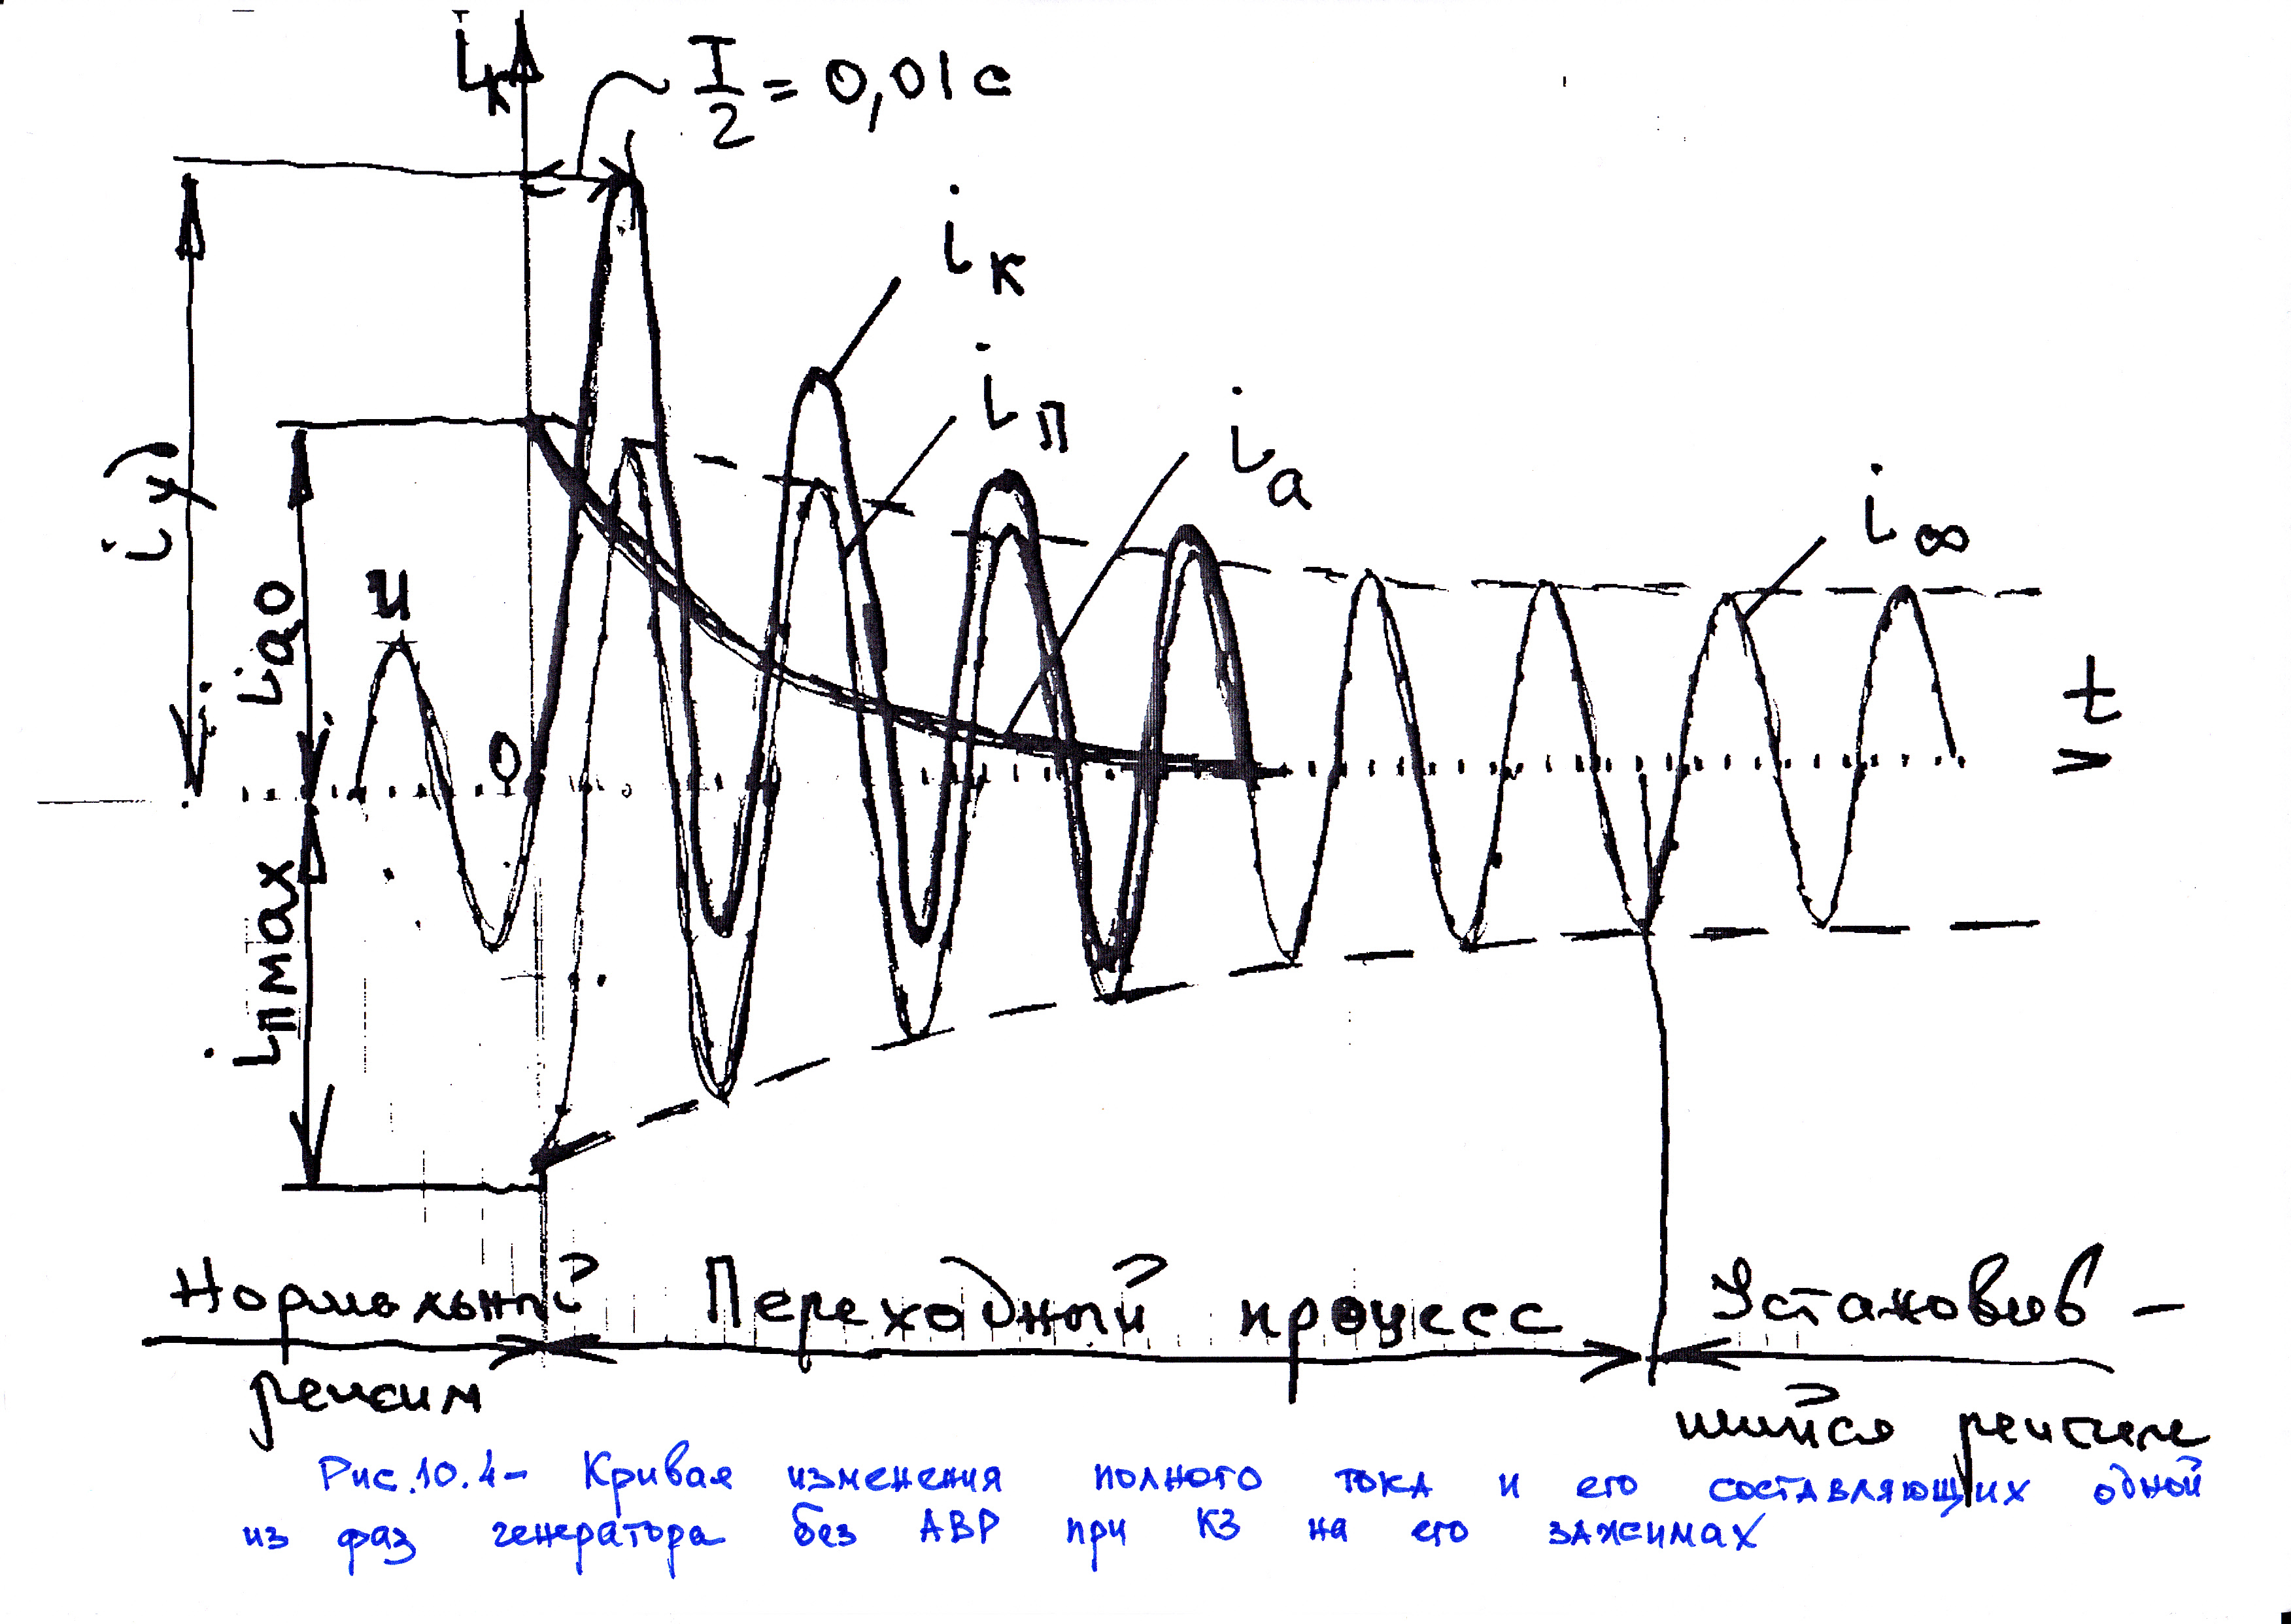 iк
T/2 = 0,01 с
iу
iк
iп
iа
i∞
iа0
u
0
t
iпмах
Нормальный Переходный процесс Установив-
режим
шийся режим
Рис.10.4- Кривая изменения полного тока и его составляющих одной
из фаз генератора без АВР при КЗ на его зажимах